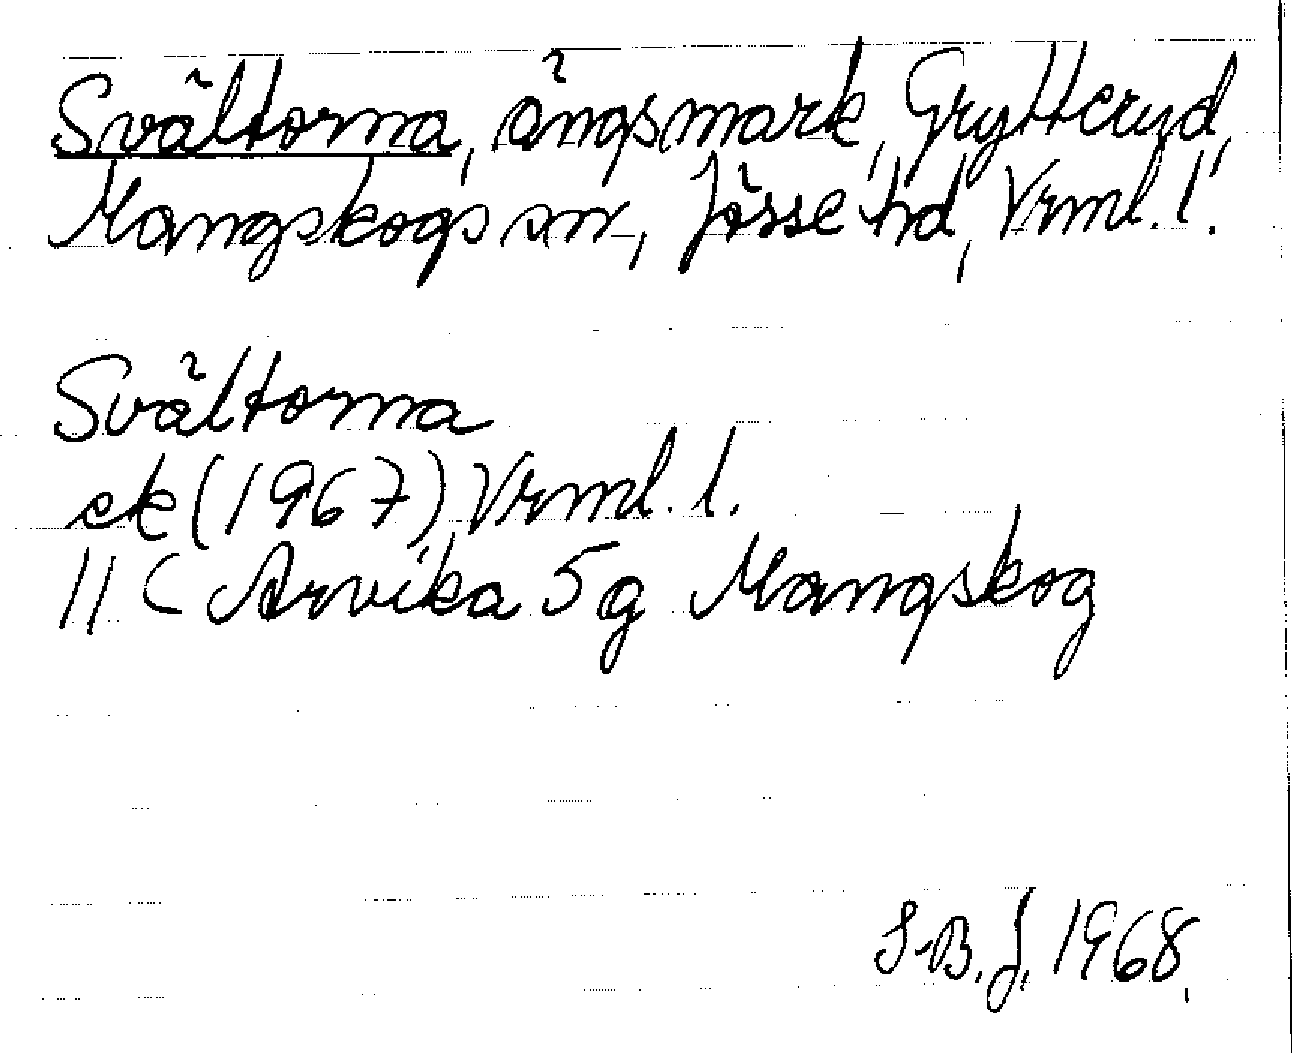 Svältorna, ängsmark, Grytteryd,
Mangskogs sn, Jösse hd, Vrml. l.
Svältorna
ek (1967) Vrml. l.
11 C Arvika 5 g Mangskog
S-B. J. 1968.